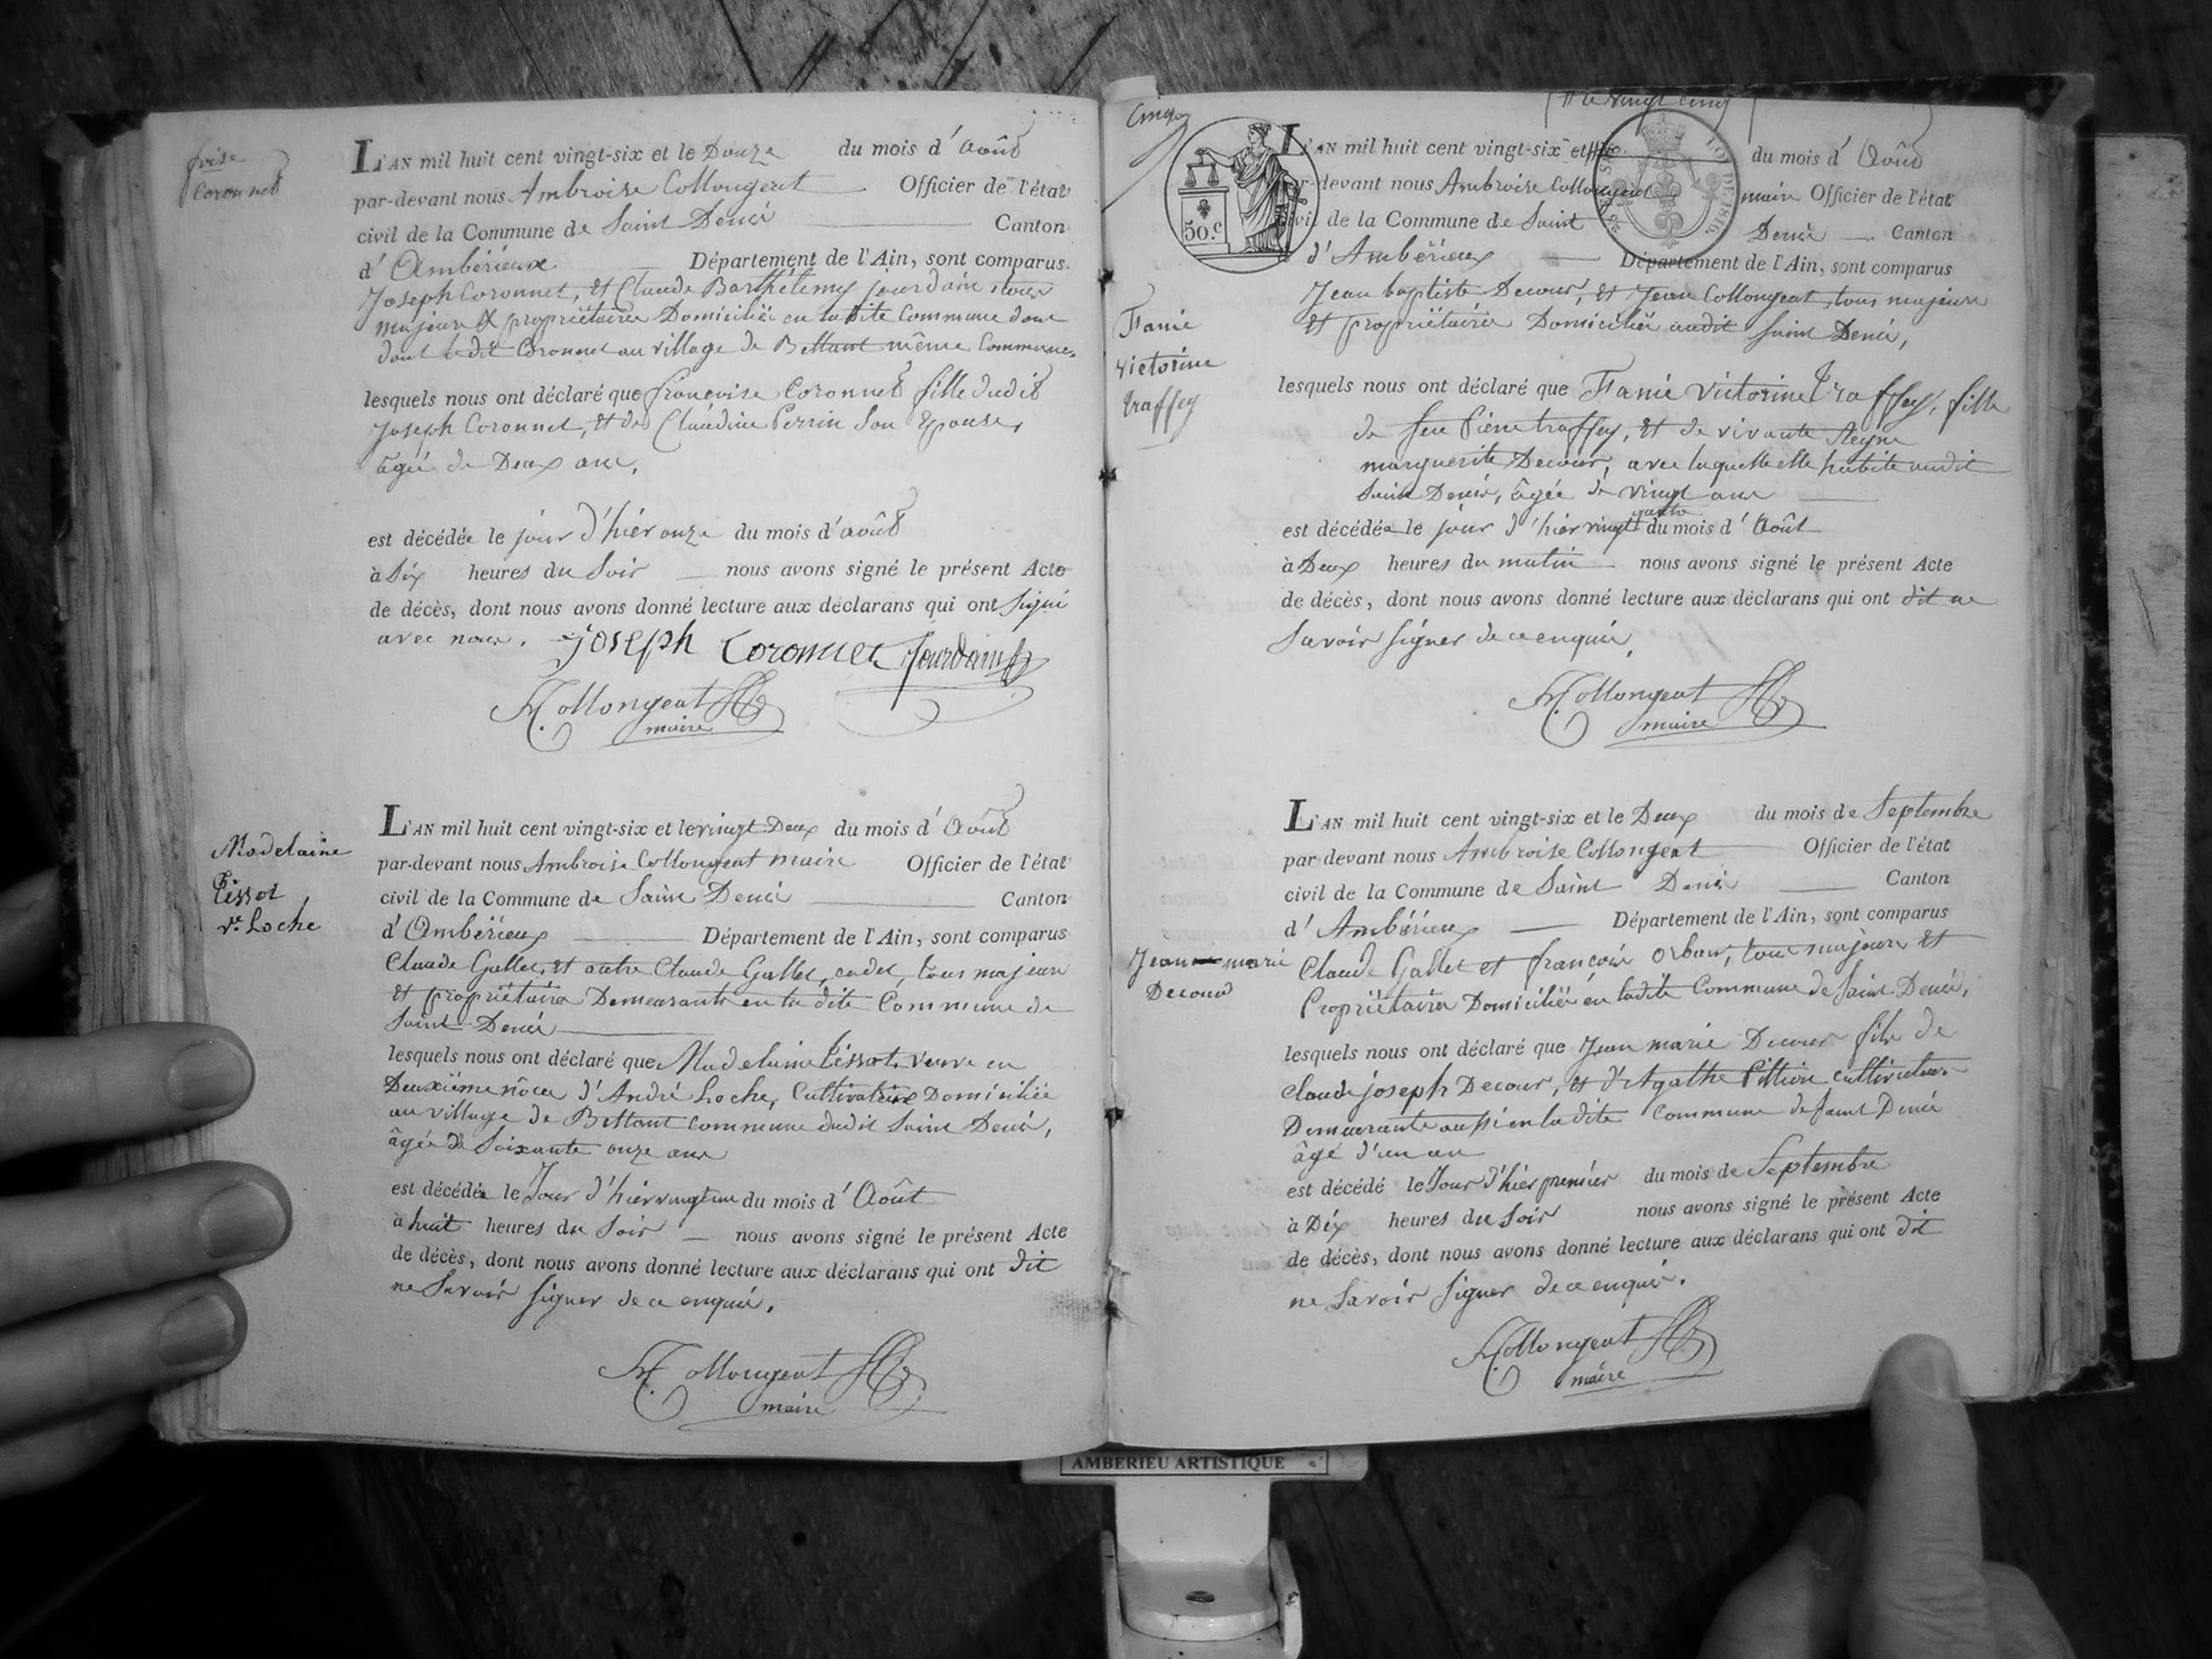 foise
Coronnet
L'AN mil huit cent vingt-six et le Douze du mois d'Août
par-devant nous Ambroise Collongeat Officier de l'état
civil de la Commune de Saint Denis Canton
d'Ambérieux Département de l'Ain, sont comparus
Joseph Coronnet, et Claude Barthélemy jourdain, tous
majeurs & propriétaires Domiciliés en ladite Commune dont
dont ledit Coronnet au village de Bettant même Commune,
lesquels nous ont déclaré que françoise Coronnet fille dudit
Joseph Coronnet, et de Claudine Perrin Son Epouse,
âgée de Deux ans,
est décédée le jour d'hiér onze du mois d'août
à Six heures du Soir nous avons signé le présent Acte
de décès, dont nous avons donné lecture aux déclarans qui ont signé
avec nous. joseph Coronnet Jourdain
Collongeat
maire
Madelaine
Tissot
ve. Loche
L'AN mil huit cent vingt-six et le vingt Deux du mois d'Août
par-devant nous Ambroise Collongeat maire Officier de l'état
civil de la Commune de Saint Denis Canton
d'Ambérieux Département de l'Ain, sont comparus
Claude Gallet, et autre Claude Gallet, cadet, tous majeurs
et propriétaires Demeurants en la dite Commune de
Saint Denis
lesquels nous ont déclaré que Madelaine Tissot, veuve en
Deuxiéme nôces d'André Loche, Cultivatrice Domiciliée
au village de Bettant Commune dudit Saint Denis,
âgée de Soixante onze ans
est décédée le Jour d'hiér vingt un du mois d'Août
à huit heures du Soir nous avons signé le présent Acte
de décès, dont nous avons donné lecture aux déclarans qui ont dit
ne Savoir signer de ce enquis.
Collongeat
maire
Cinq
le vingt cinq
50.c
LOI DE 1816.
L'AN mil huit cent vingt-six et du mois d'Août
par-devant nous Ambroise Collongeat maire Officier de l'état
civil de la Commune de Saint Denis Canton
d'Ambérieux Département de l'Ain, sont comparus
Jean baptiste Decour, et Jean Collongeat, tous majeurs
et propriétaires Domiciliés audit Saint Denis,
Fanie
victorine
traffey
lesquels nous ont déclaré que Fanie Victorine Traffey, fille
de feu Piérre traffey, et de vivante Reyne
marguerite Decour, avec laquelle elle habite audit
Saint Denis, âgée de vingt ans
est décédée le jour d'hiér vingt quatre du mois d'Août
à Deux heures du matin nous avons signé le présent Acte
de décès, dont nous avons donné lecture aux déclarans qui ont dit ne
Savoir signer de ce enquis.
Collongeat
maire
L'AN mil huit cent vingt-six et le Deux du mois de Septembre
par devant nous Ambroise Collongeat Officier de l'état
civil de la Commune de Saint Denis Canton
d'Ambérieux Département de l'Ain, sont comparus
Jean marie
Decour
Claude Gallet et françois Orban, tous majeurs et
Propriétaires Domiciliés en ladite Commune de Saint Denis,
lesquels nous ont déclaré que Jean marie Decour fils de
Claude joseph Decour, et d'Agathe Pittion cultivateurs
Demeurants aussi en ladite Commune de Saint Denis
âgé d'un an
est décédé le Jour d'hiér premiér du mois de Septembre
à Dix heures du Soir nous avons signé le présent Acte
de décès, dont nous avons donné lecture aux déclarans qui ont dit
ne Savoir signer de ce enquis.
Collongeat
maire
AMBERIEU ARTISTIQUE